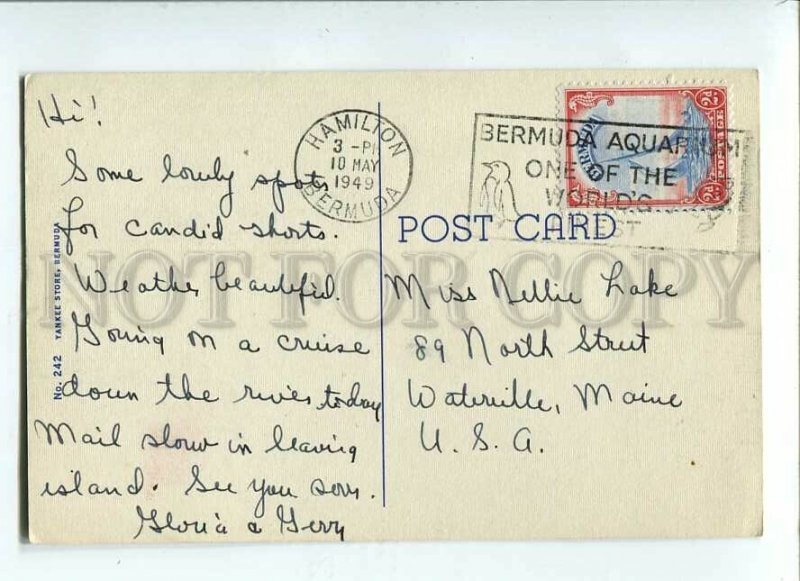 Hi!
Some lovely spots
for candid shorts.
Weather beautiful.
Going on a cruise
down the river today
Mail slow in leaving
island. See you soon.
Gloria & Gerry
No. 242 YANKEE STORE, BERMUDA
HAMILTON
3 - PM
10 MAY
1949
BERMUDA
BERMUDA AQUARIUM
ONE OF THE
WORLD'S
2d.
2d.
POSTAGE
BERMUDA
POST CARD
Miss Nellie Lake
89 North Street
Waterville, Maine
U. S. A.
NOT FOR COPY